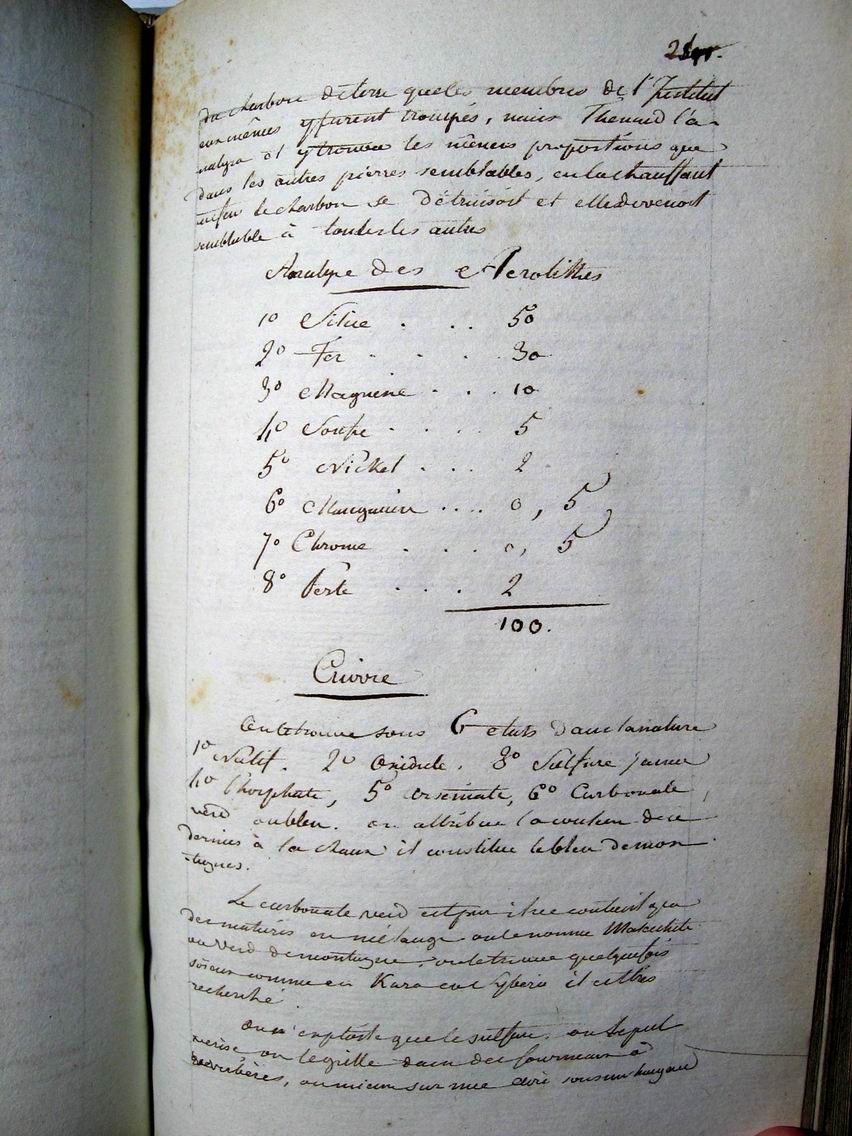 du charbon de terre que les membres de l'Institut
eux mêmes y furent trompés, mais Thenard l'a-
nalysa et y trouva les mêmes proportions que
dans les autres pierres semblables, en la chauffant
au feu le charbon se détruisoit et elle devenoit
semblable à toutes les autres
Analyse des Aerolithes
1º Silice . . . 50
2º Fer . . . 30
3º Magnesie . . . 10
4º Soufre . . . . 5
5º Nickel . . . 2
6º Manganèse . . . . 0, 5
7º Chrome . . . . 0, 5
8º Perte . . . . 2
100.
Cuivre
On le trouve sous 6 etats dans la nature
1º Natif. 2º Oxidule. 3º Sulfure jaune
4º Phosphate, 5º arseniate, 6º Carbonate,
verd ou bleu. on attribue la couleur de ce
dernier à la chaux il constitue le bleu de mon
-tagnes.
Le carbonate verd est pur il ne contient
des matieres en mélange on le nomme Malachite
ou verd de montagne, on le trouve quelquefois
soieux comme en Siberie il est très
recherché
On n'exploite que le sulfure. on le pul
verise, on le grille dans des fourneaux à
reverbères, ou mieux sur une aire sous un hangard